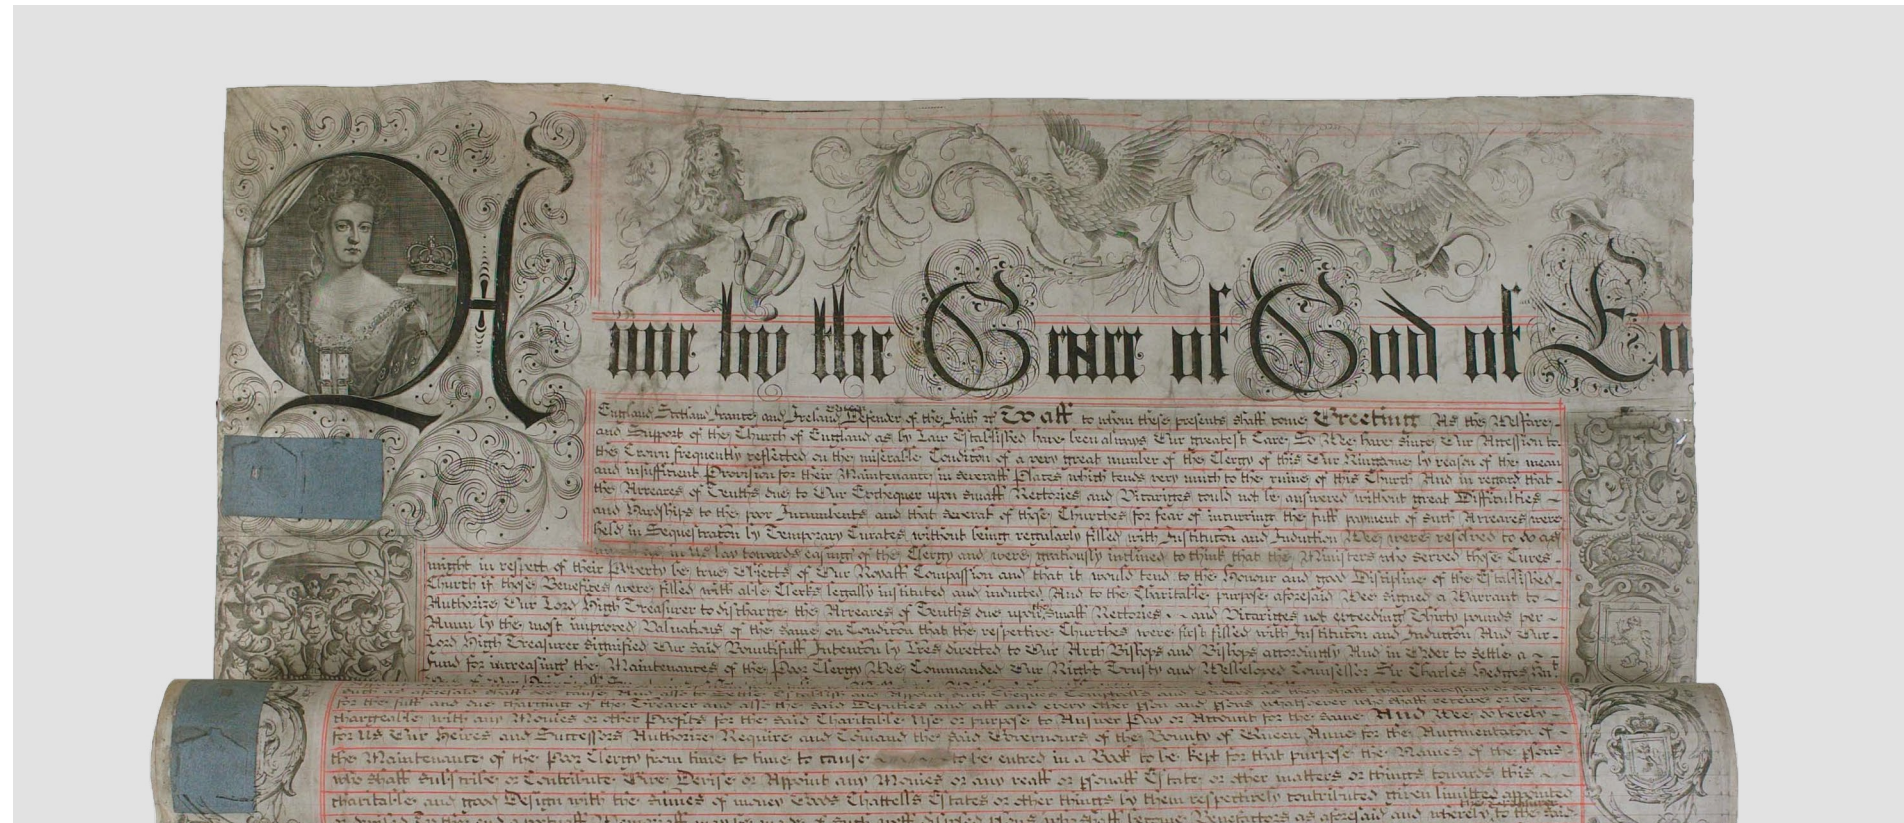 Anne by the Grace of God of En
England Scotland France and Ireland Defender of the Faith &c To all to whom these presents shall come Greeting As the Welfare
and Support of the Church of England as by Law Established have been always Our greatest Care So Wee have since Our Accession to
the Crown frequently reflected on the miserable Condicon of a very great number of the Clergy of this Our Kingdome by reason of the mean
and insufficient Provision for their Maintenance in severall Places which tends very much to the ruine of this Church And in regard that
the Arreares of Tenths due to Our Exchequer upon small Rectories and Vicariges could not be answered without great Difficulties
and Hardships to the poor Incumbents and that several of those Churches for fear of incurring the full payment of such Arreares were
held in Sequestracon by Temporary Curates without being regularly filled with Institucon and Induction Wee were resolved to do as
in Us lay towards easing of the Clergy and were graciously inclined to think that the Ministers who served those Cures
might in respect of their Poverty be true Objects of Our Royall Compassion and that it would tend to the Honour and good Discipline of the Established
Church if those Benefices were filled with able Clerks legally instituted and inducted And to the Charitable purpose aforesaid Wee signed a Warrant to
Authorize Our Lord High Treasurer to discharge the Arreares of Tenths due upon the small Rectories and Vicariges not exceeding Thirty pounds per
Annum by the most improved Valuations of the same on Condicon that the respective Churches were first filled with Institucon and Inducton And Our
Lord High Treasurer signified Our said Bountifull Intencon by Lres directed to Our Arch Bishops and Bishops accordingly And in Order to settle a
Fund for increasing the Maintenances of the Poor Clergy Wee Commanded Our Right Trusty and Wellbeloved Counsellor Sir Charles Hedges
such as aforesaid shall
for the full and due charging of the Treasurer and all the said Deputies and all and every other pson and psons whatsoever who shall receive or be
chargeable with any Monies or other Profits for the said Charitable Use or purpose to Answer Pay or Account for the same And Wee do hereby
for Us Our Heires and Successors Authorize Require and Comand the said Governours of the Bounty of Queen Anne for the Augmentacon of
the Maintenance of the Poor Clergy from time to time to cause to be entred in a Book to be kept for that purpose the Names of the psons
who shall subscribe or Contribute Give Devise or Appoint any Monies or any reall or psonall Estate or other matters or things towards this
charitable and good Design with the summes of money Goods Chattells Estates or other things by them respectively contributed given limitted appointed